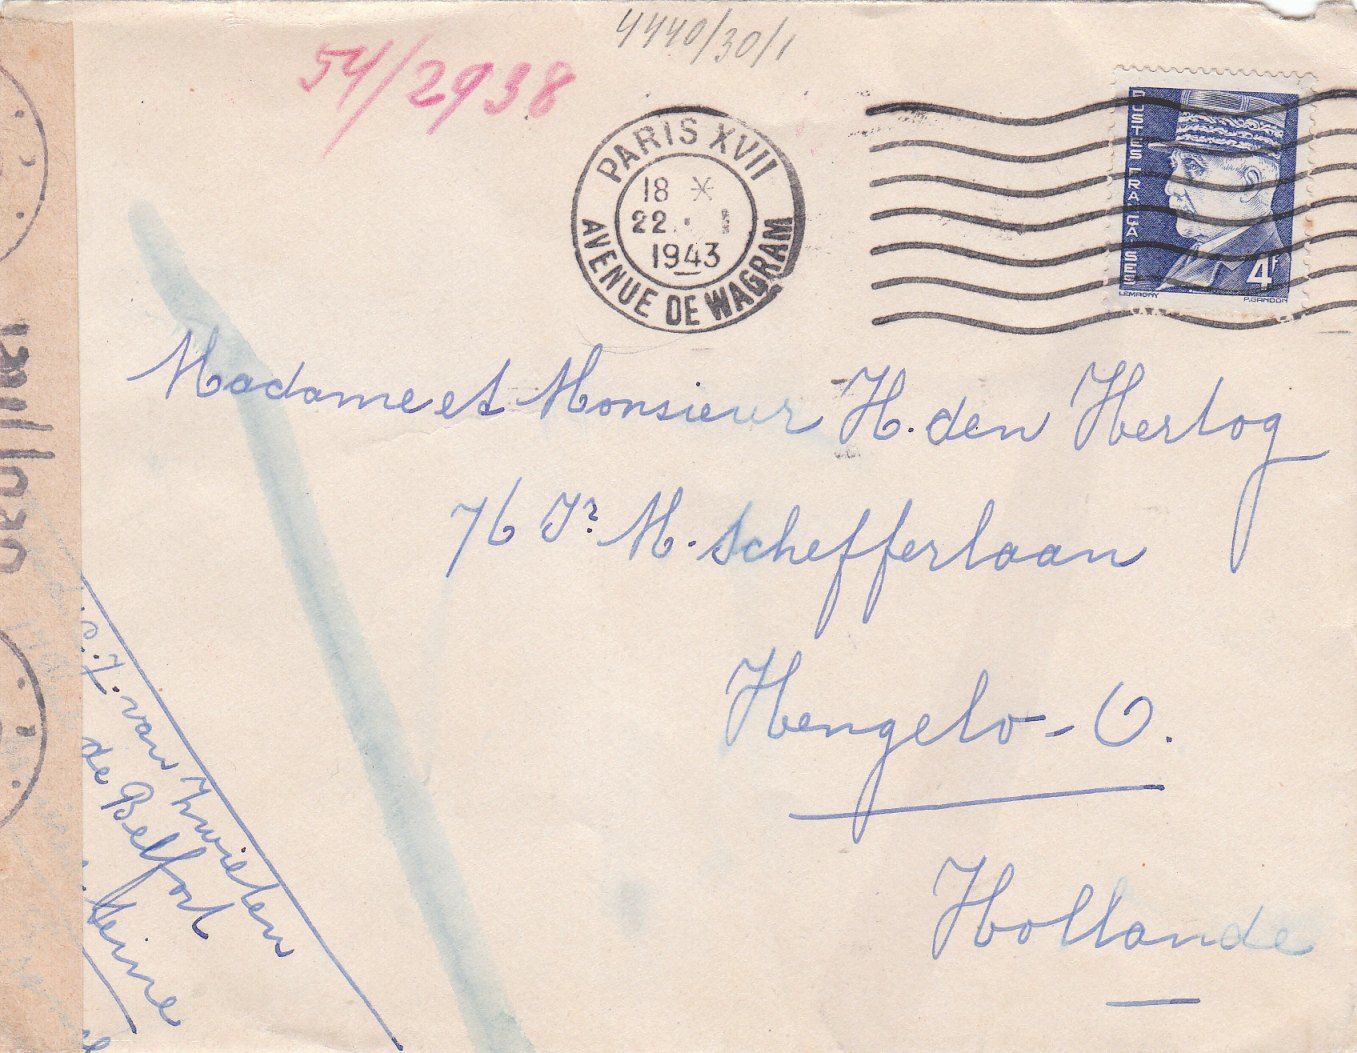 4440/30/1
54/2938
PARIS XVII
18 *
22
1943
AVENUE DE WAGRAM
POSTES FRANÇAISES
4F
LEMAGNY P.GANDON
Madame et Monsieur H. den Hertog
76 Jr. M. Schefferlaan
Hengelo-O.
Hollande
Geöffnet
J. van Zwieten
de Belfort
Seine